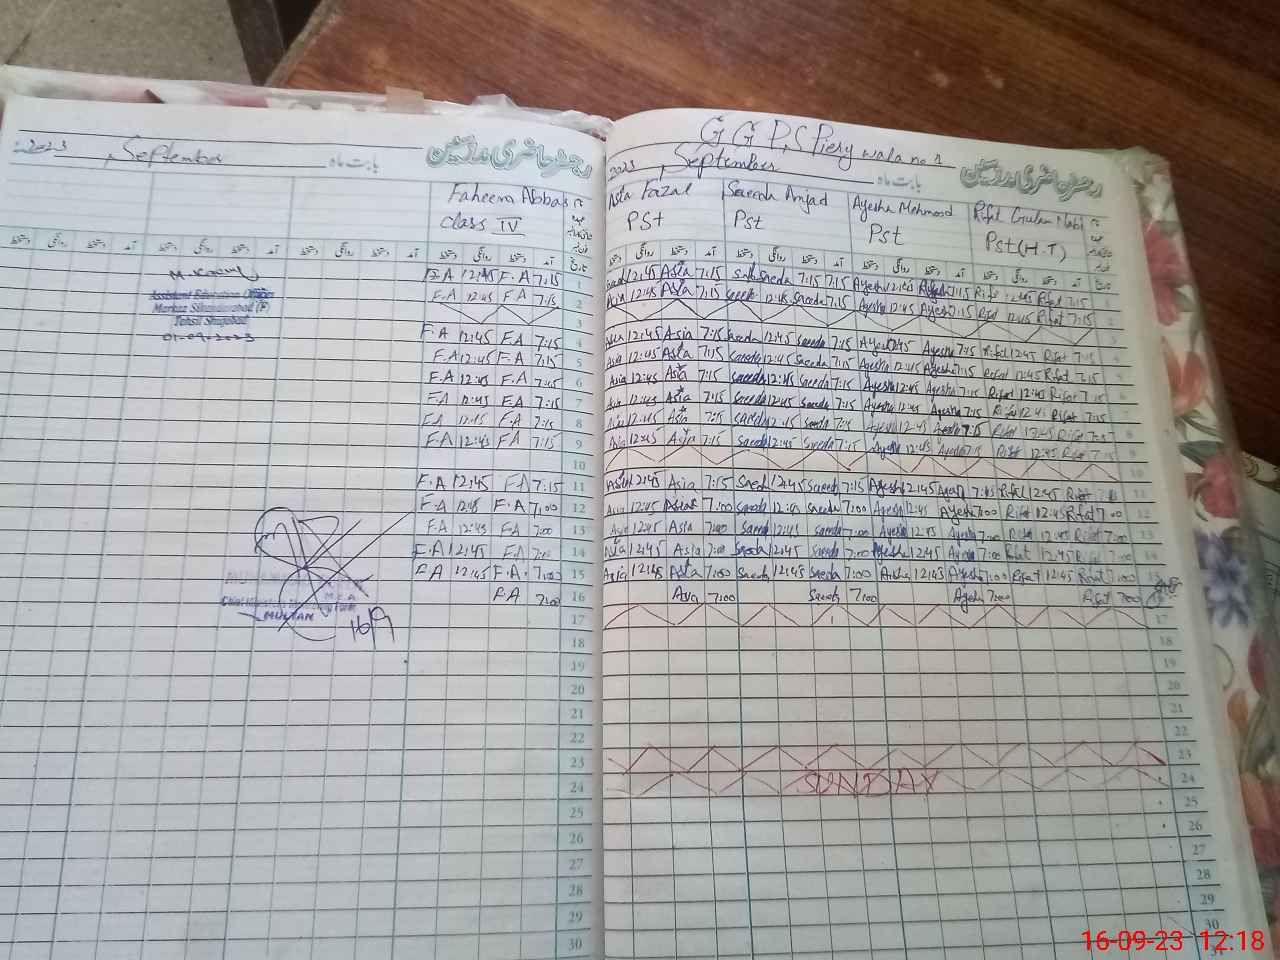 2023 September بابت ماہ رجسٹر حاضری مدرسین
Faheem Abbas
Class IV
آمد دستخط روانگی دستخط
تاریخ
F.A 12:45 F.A 7:15 1
F.A 12:45 F.A 7:15 2
3
F.A 12:45 F.A 7:15 4
F.A 12:45 F.A 7:15 5
F.A 12:45 F.A 7:45 6
F.A 12:45 F.A 7:15 7
F.A 12:45 F.A 7:15 8
F.A 12:45 F.A 7:15 9
10
F.A 12:45 F.A 7:15 11
F.A 12:45 F.A 7:00 12
F.A 12:45 F.A 7:00 13
F.A 12:45 F.A 7:00 14
F.A 12:45 F.A. 7:00 15
F.A 7:00 16
17
18
19
20
21
22
23
24
25
26
27
28
29
30
Assistant Education Officer
Markaz Sikandarabad (F)
Tehsil Shujabad
01-09-2023
M.E.A
MULTAN
16/9
G G P,S Piery wala no 1
2023 September بابت ماہ رجسٹر حاضری مدرسین
Asia Fazal Saeeda Amjad Ayesha Mehmood Rifat Gulam Nabi
PSt Pst Pst Pst (H.T)
Asia 12:45 Asia 7:15 Saeeda 7:15 7:15 Ayesha 12:45 Ayesha 7:15 Rifat 12:45 Rifat 7:15 1
Asia 12:45 Asia 7:15 Saeeda 12:45 Saeeda 7:15 Ayesha 12:45 Ayesha 7:15 Rifat 12:45 Rifat 7:15 2
3
Asia 12:45 Asia 7:15 Saeeda 12:45 Saeeda 7:15 Ayesha 12:45 Ayesha 7:15 Rifat 12:45 Rifat 7:15 4
Asia 12:45 Asia 7:15 Saeeda 12:45 Saeeda 7:15 Ayesha 12:45 Ayesha 7:15 Rifat 12:45 Rifat 7:15 5
Asia 12:45 Asia 7:15 Saeeda 12:45 Saeeda 7:15 Ayesha 12:45 Ayesha 7:15 Rifat 12:45 Rifat 7:15 6
Asia 12:45 Asia 7:15 Saeeda 12:45 Saeeda 7:15 Ayesha 12:45 Ayesha 7:15 Rifat 12:45 Rifat 7:15 7
Asia 12:45 Asia 7:15 Saeeda 12:45 Saeeda 7:15 Ayesha 12:45 Ayesha 7:15 Rifat 12:45 Rifat 7:15 8
Asia 12:45 Asia 7:15 Saeeda 12:45 Saeeda 7:15 Ayesha 12:45 Ayesha 7:15 Rifat 12:45 Rifat 7:15 9
10
Asia 12:45 Asia 7:15 Saeeda 12:45 Saeeda 7:15 Ayesha 12:45 Ayesha 7:15 Rifat 12:45 Rifat 11
Asia 12:45 Asia 7:00 Saeeda 12:45 Saeeda 7:00 Ayesha 12:45 Ayesha 7:00 Rifat 12:45 Rifat 7:00 12
Asia 12:45 Asia 7:00 Saeeda 12:45 Saeeda 7:00 Ayesha 12:45 Ayesha 7:00 Rifat 12:45 Rifat 7:00 13
Asia 12:45 Asia 7:00 Saeeda 12:45 Saeeda 7:00 Ayesha 12:45 Ayesha 7:00 Rifat 12:45 Rifat 7:00 14
Asia 12:45 Asia 7:00 Saeeda 12:45 Saeeda 7:00 Aisha 12:45 Ayesha 7:00 Rifat 12:45 Rifat 7:00 15
Asia 7:00 Saeeda 7:00 Ayesha 7:00 Rifat 7:00
17
18
19
20
21
22
23
SUNDAY 24
25
26
27
28
29
30
31
16-09-23 12:18